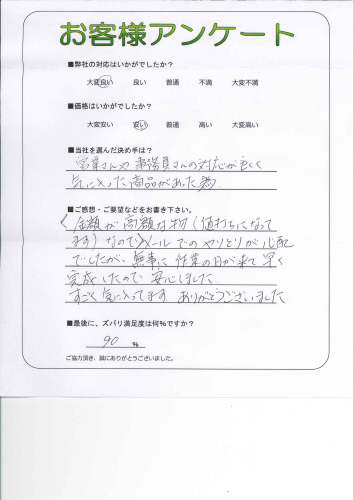 お客様アンケート
■弊社の対応はいかがでしたか?
大変良い 良い 普通 不満 大変不満
■価格はいかがでしたか?
大変安い 安い 普通 高い 大変高い
■当社を選んだ決め手は?
営業さんや事務員さんの対応が良く
気に入った商品があった為
■ご感想・ご要望などをお書き下さい。
金額が高額な物(値打ちになって
ます)なので メールでのやりとりが心配
でしたが、無事に作業の日が来て早く
完成したので安心しました
すごく気に入ってます ありがとうございました
■最後に、ズバリ満足度は何%ですか?
90 %
ご協力頂き、誠にありがとうございました。